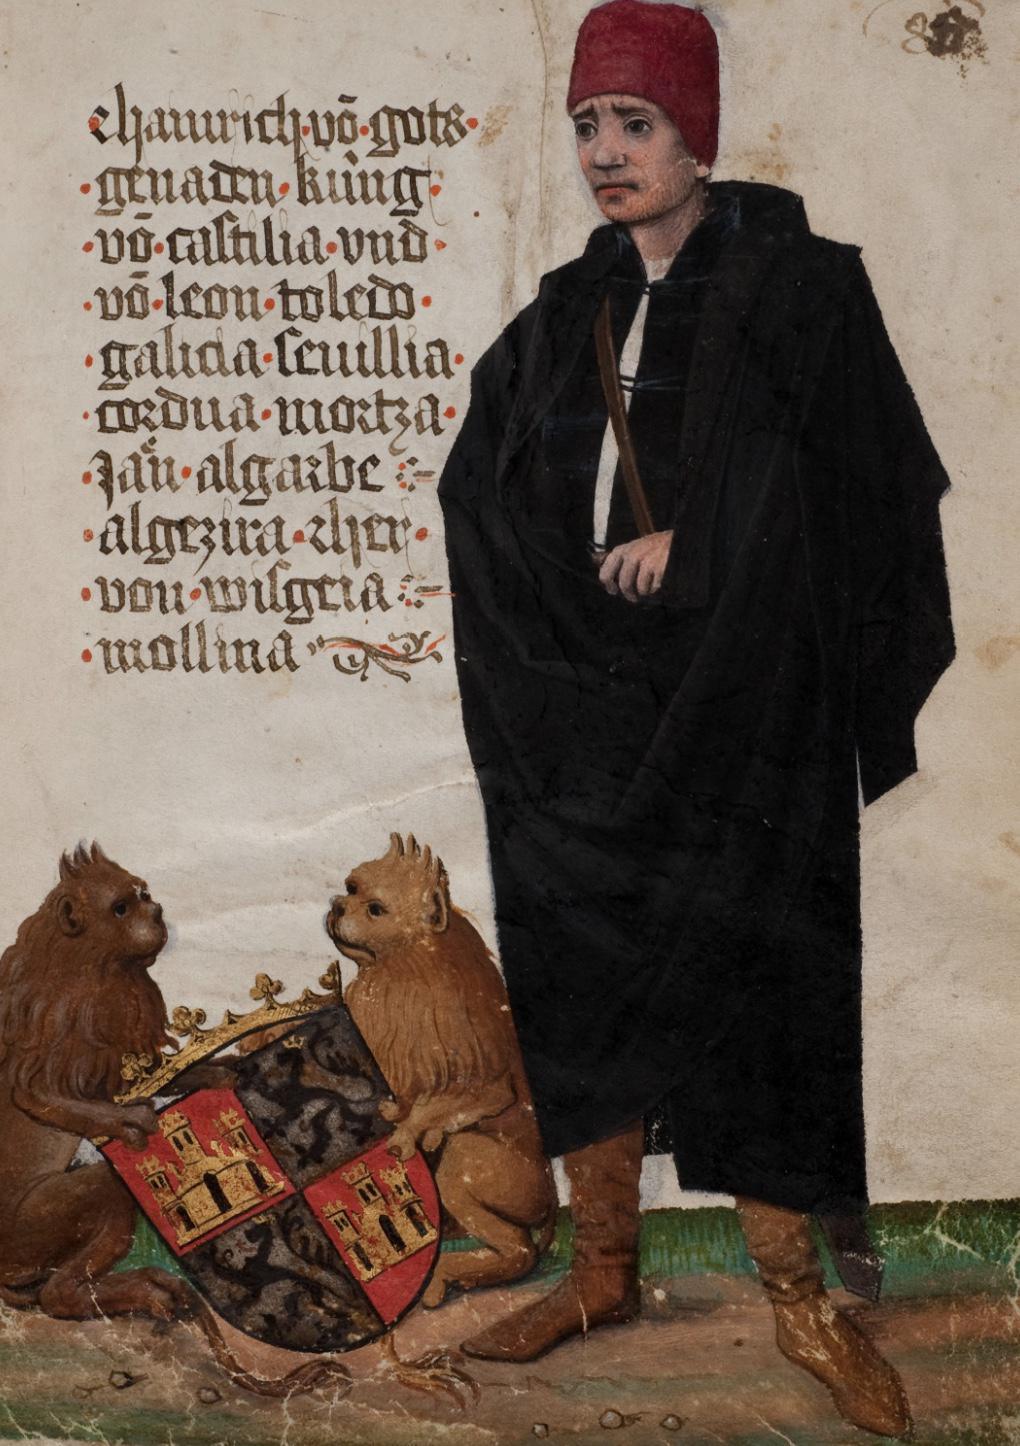 Chainrich·vō·gots·
·genaden·küng·
·vō·castilia·vnd·
·vō·leon·toledo·
·galicia·seuillia·
·cordua·mortza·
·Jaͤn·algarbe
·algezira·rher·
·von·wisgeia
·mollina